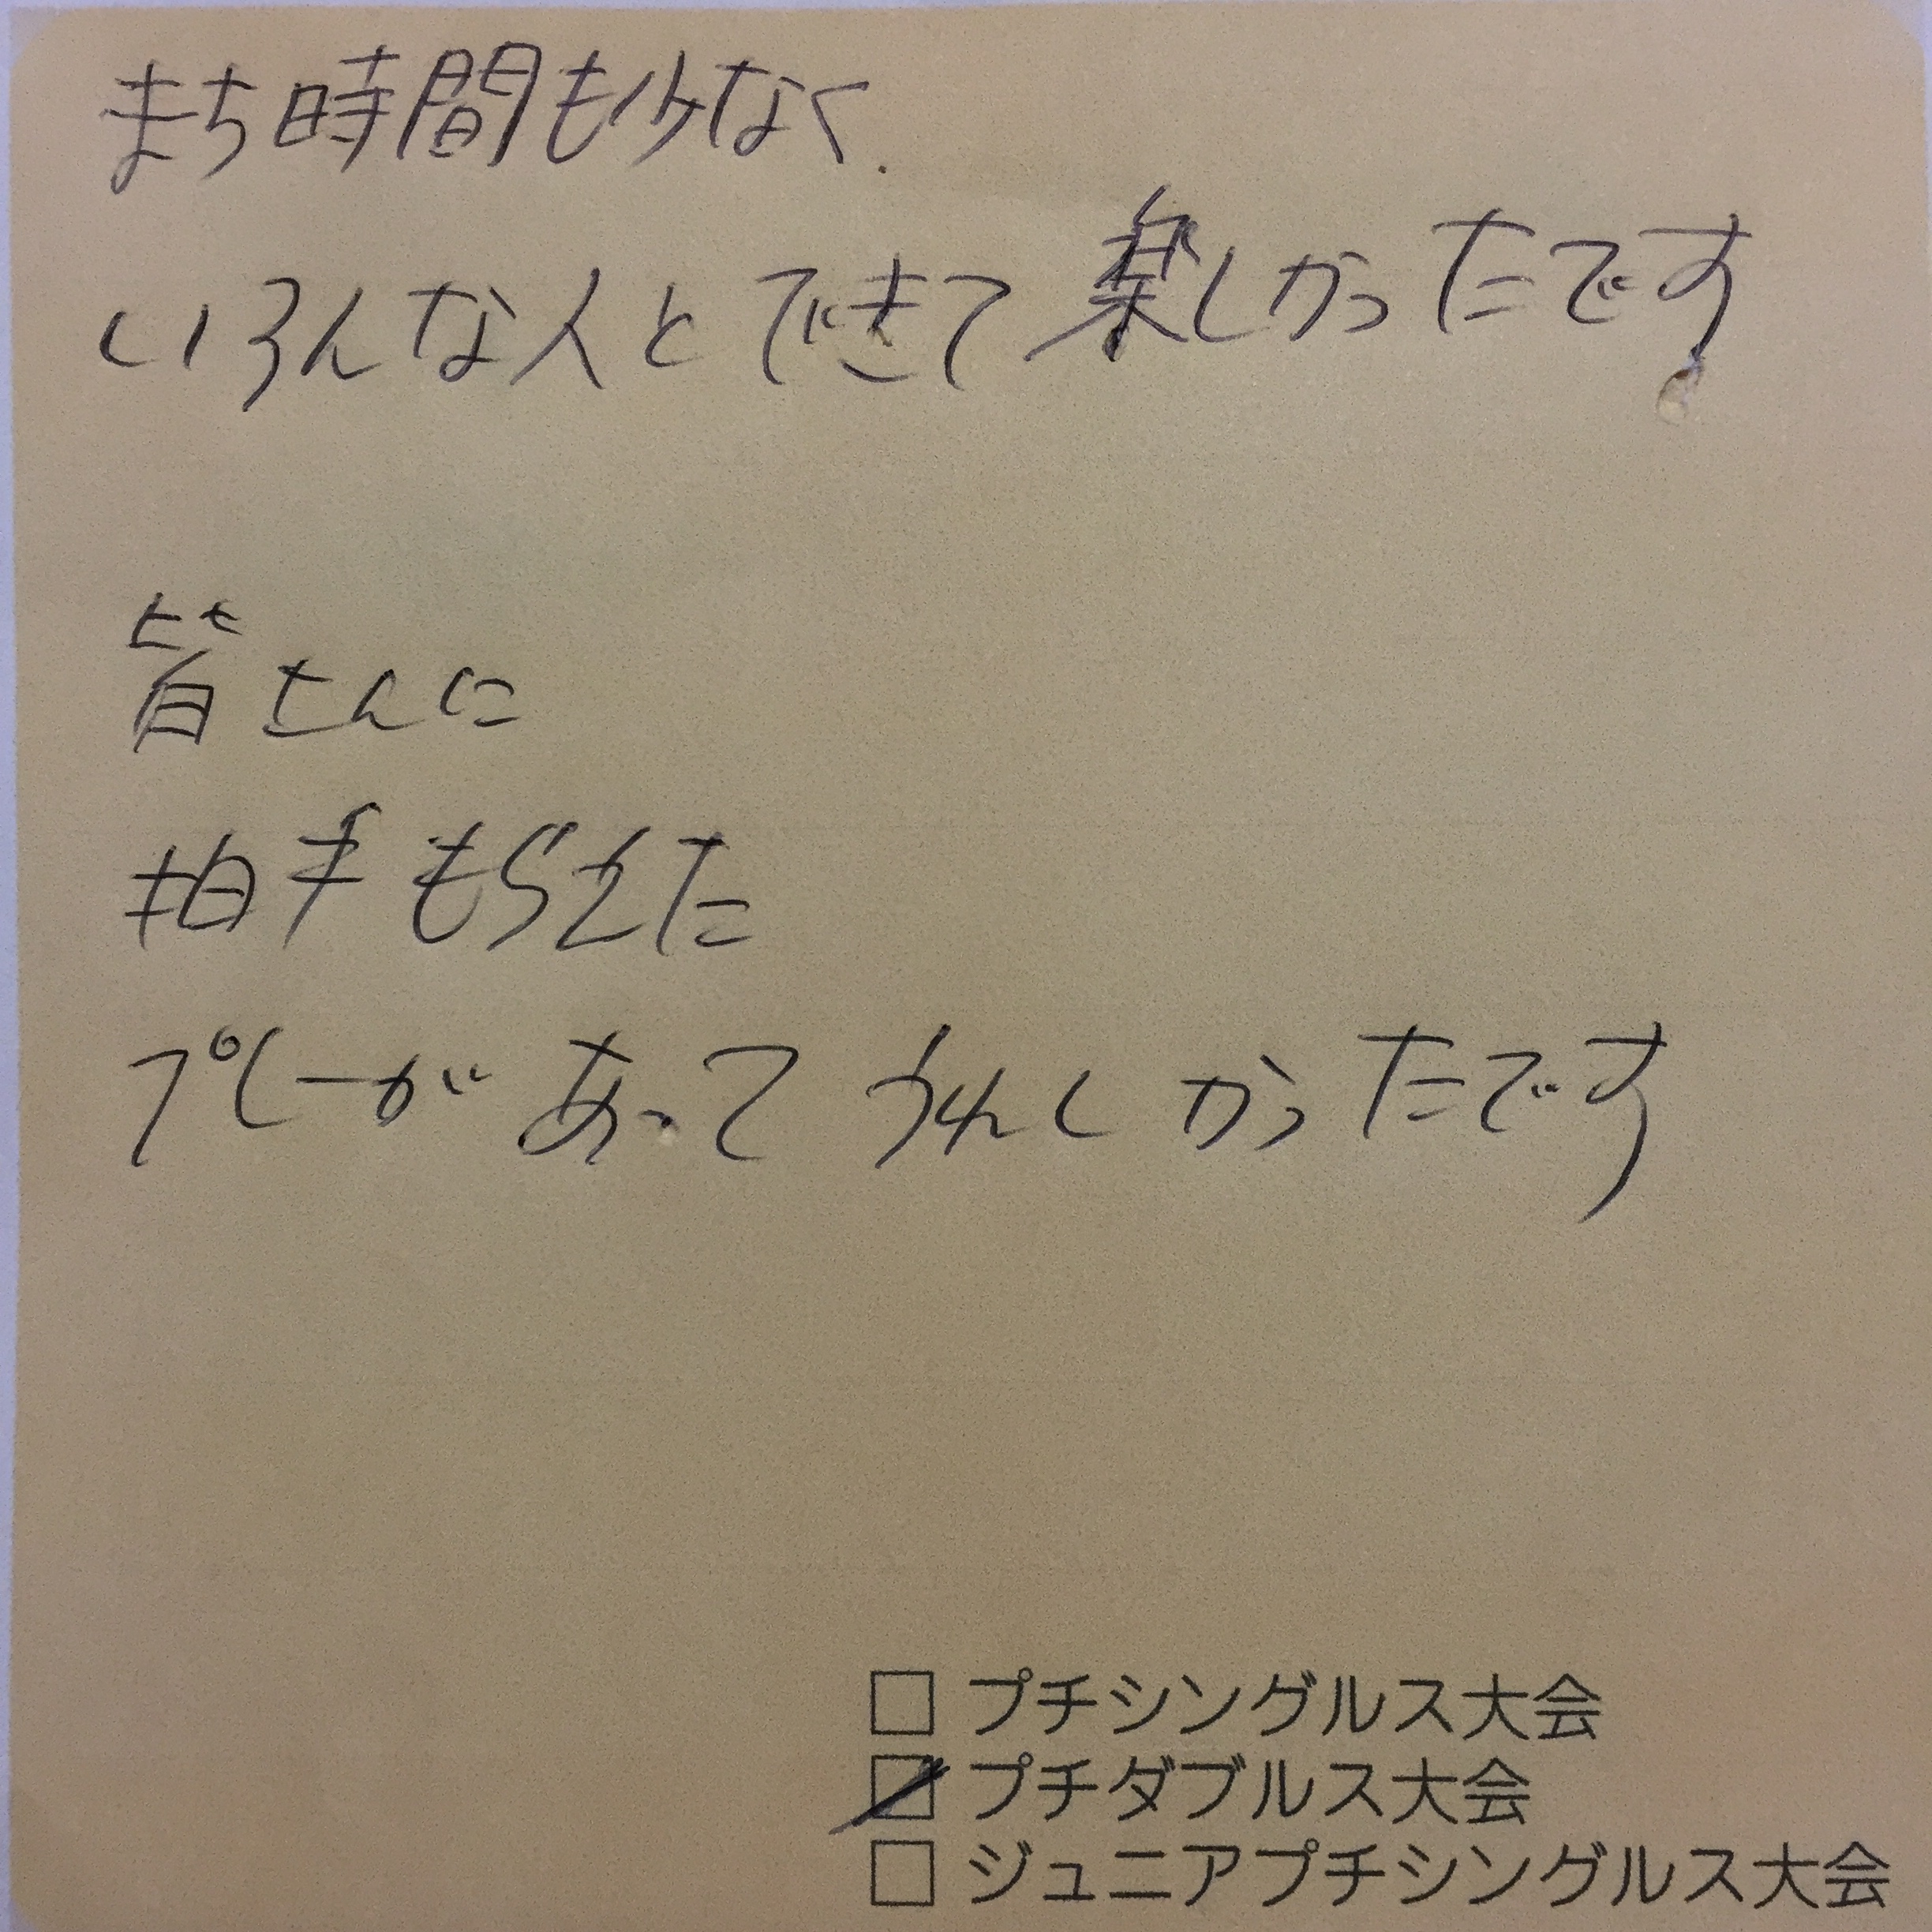 まち時間も少なく.
いろんな人とできて楽しかったです
皆さんに
拍手もらえた
プレーがあってうれしかったです
□ プチシングルス大会
☑ プチダブルス大会
□ ジュニアプチシングルス大会